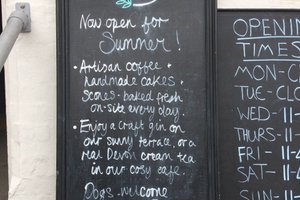 Now open for
Summer!
• Artisan coffee +
handmade cakes +
Scones - baked fresh
on-site every day.
• Enjoy a craft gin on
our sunny terrace, or a
real Devon cream tea
in our cosy cafe.
Dogs welcome
OPENING
TIMES
MON-C
TUE-CLO
WED-11-
THURS-11
FRI-11-4
SAT-11-4
SUN-11-